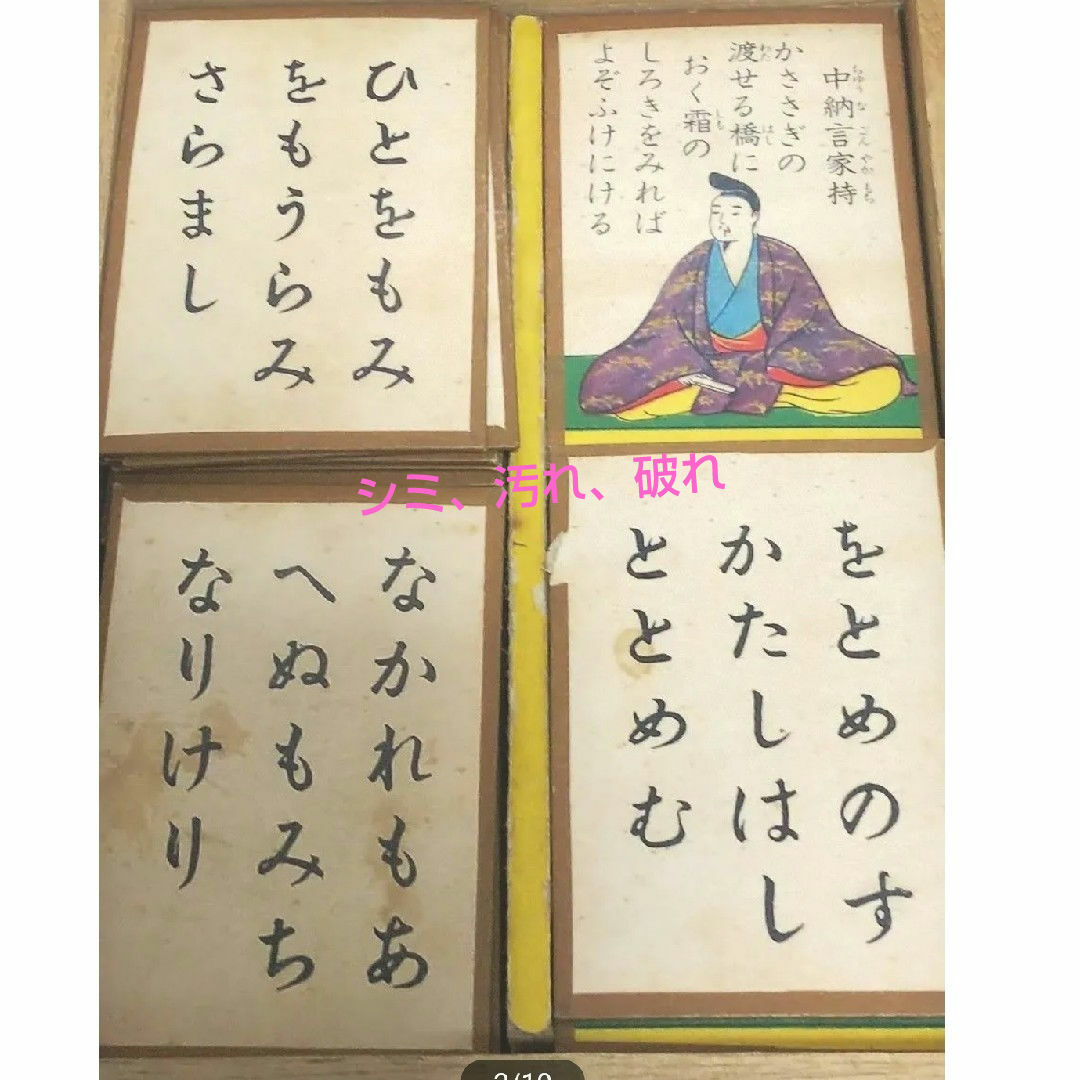 ひとをもみ
をもうらみ
さらまし
中納言家持
ちゆうなごんやかもち
かささぎの
渡せる橋に
わた
はし
おく霜の
しも
しろきをみれば
よぞふけにける
シミ、汚れ、破れ
なかれもあ
へぬもみち
なりけり
をとめのす
かたしはし
ととめむ